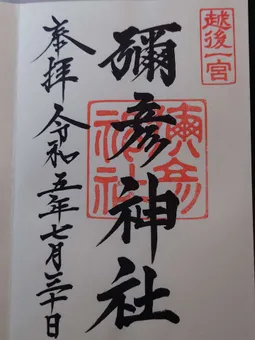 越後一宮
彌彦神社
彌彦神社
奉拝
令和五年七月三十日